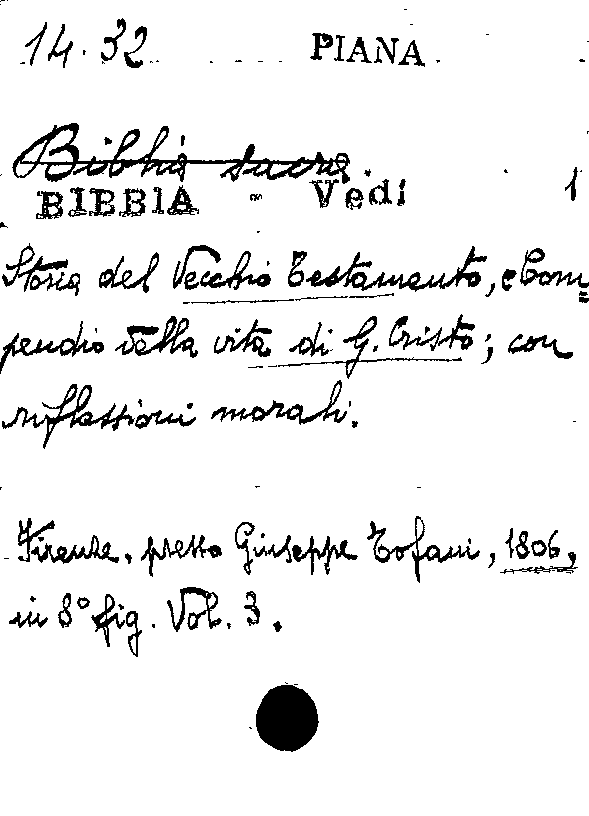 14.32 PIANA
Bibbia sacra.
BIBBIA - Vedi 1
Storia del Vecchio Testamento, e Com=
pendio della vita di G. Cristo; con
riflessioni morali.
Firenze, presso Giuseppe Tofani, 1806,
in 8° fig. Vol. 3.